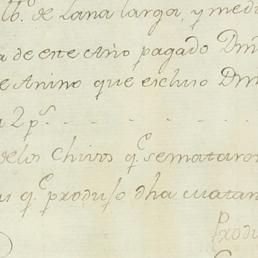 lb.s de Lana larga, y medi
a de este Año pagado Dm
e Anino que escluio Dm
2 p.s
delos Chivos q.e se mataron
q.e produso dha matan
Produ